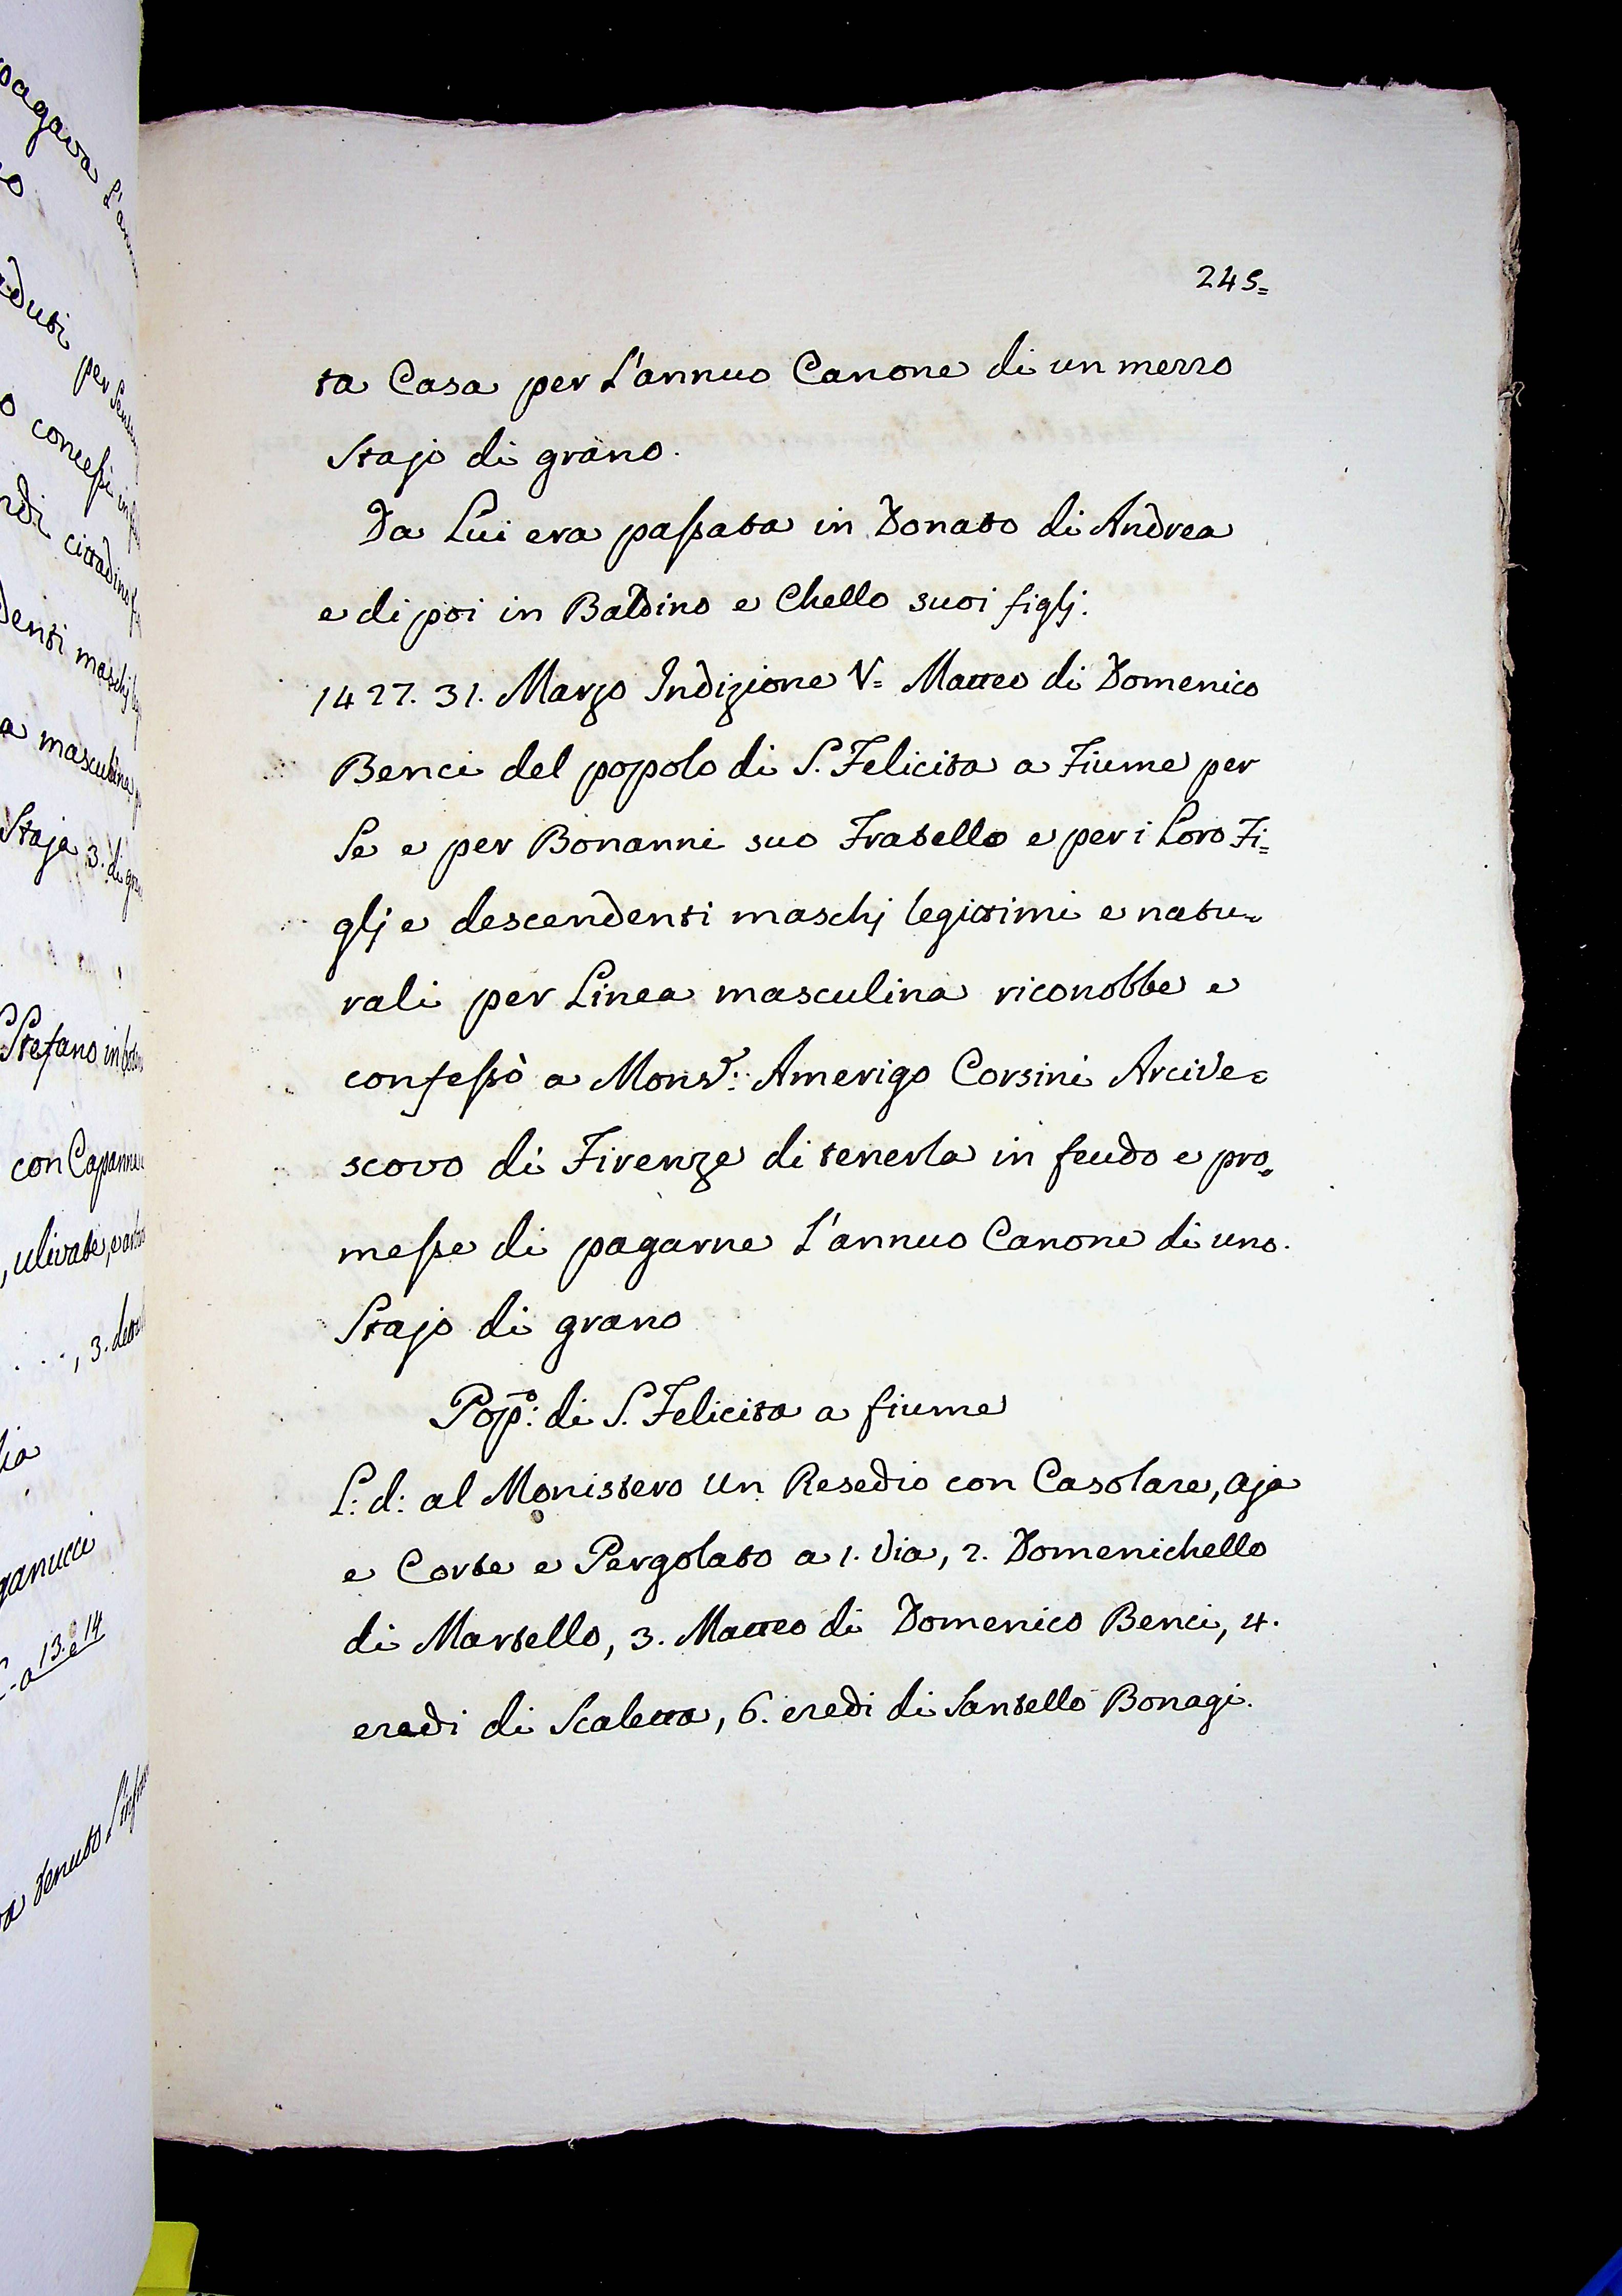 245=
ta Casa per L'annuo Canone di un mezzo
Stajo di grano.
Da Lui era passata in Donato di Andrea
e di poi in Baldino e Chello suoi figlj.
1427. 31. Marzo Indizione V= Matteo di Domenico
Benci del popolo di S. Felicita a Fiume per
Se e per Bonanni suo Fratello e per i Loro Fi=
glj e descendenti maschj legittimi e natu=
rali per Linea masculina riconobbe e
confessò a Monsr: Amerigo Corsini Arcive=
scovo di Firenze di tenerla in feudo e pro=
messe di pagarne L'annuo Canone di uno
Stajo di grano
Popo: di S. Felicita a fiume
L: d: al Monistero Un Resedio con Casolare, aja
e Corte e Pergolato a 1. Via, 2. Domenichello
di Martello, 3. Matteo di Domenico Benci, 4.
eredi di Scaletta, 6. eredi di Santello Bonagi.
pagava
concessi
cittadino
denti maschj
a masculina
Staja 3. di
Stefano in
con Capanne
, ulivate, e
. . ., 3.
ganucci
13. e 14
tenuto